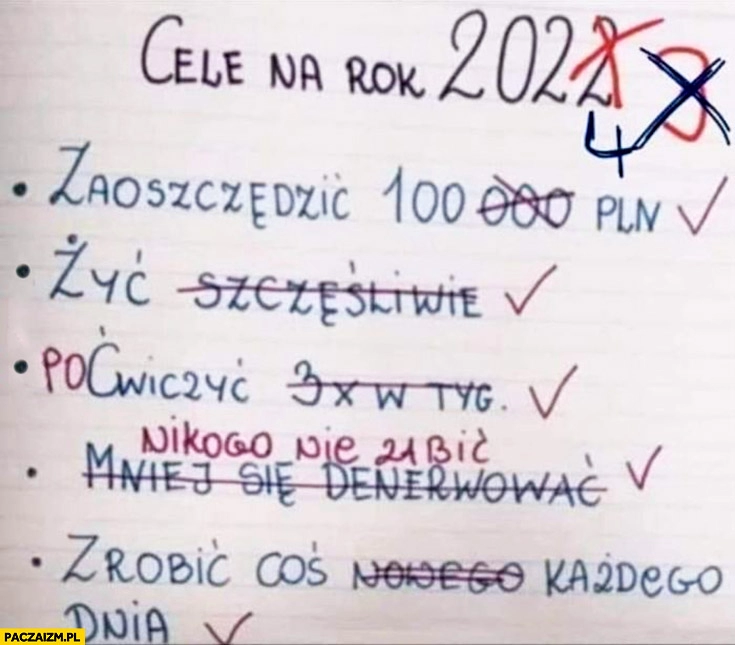 CELE NA ROK 2022 3
4
• ZAOSZCZĘDZIĆ 100 000 PLN ✓
• ŻYĆ SZCZĘŚLIWIE ✓
• POĆWICZYĆ 3 X W TYG. ✓
NIKOGO NIE ZABIĆ
• MNIEJ SIĘ DENERWOWAĆ ✓
• ZROBIĆ COŚ NOWEGO KAŻDEGO
DNIA ✓
PACZAIZM.PL